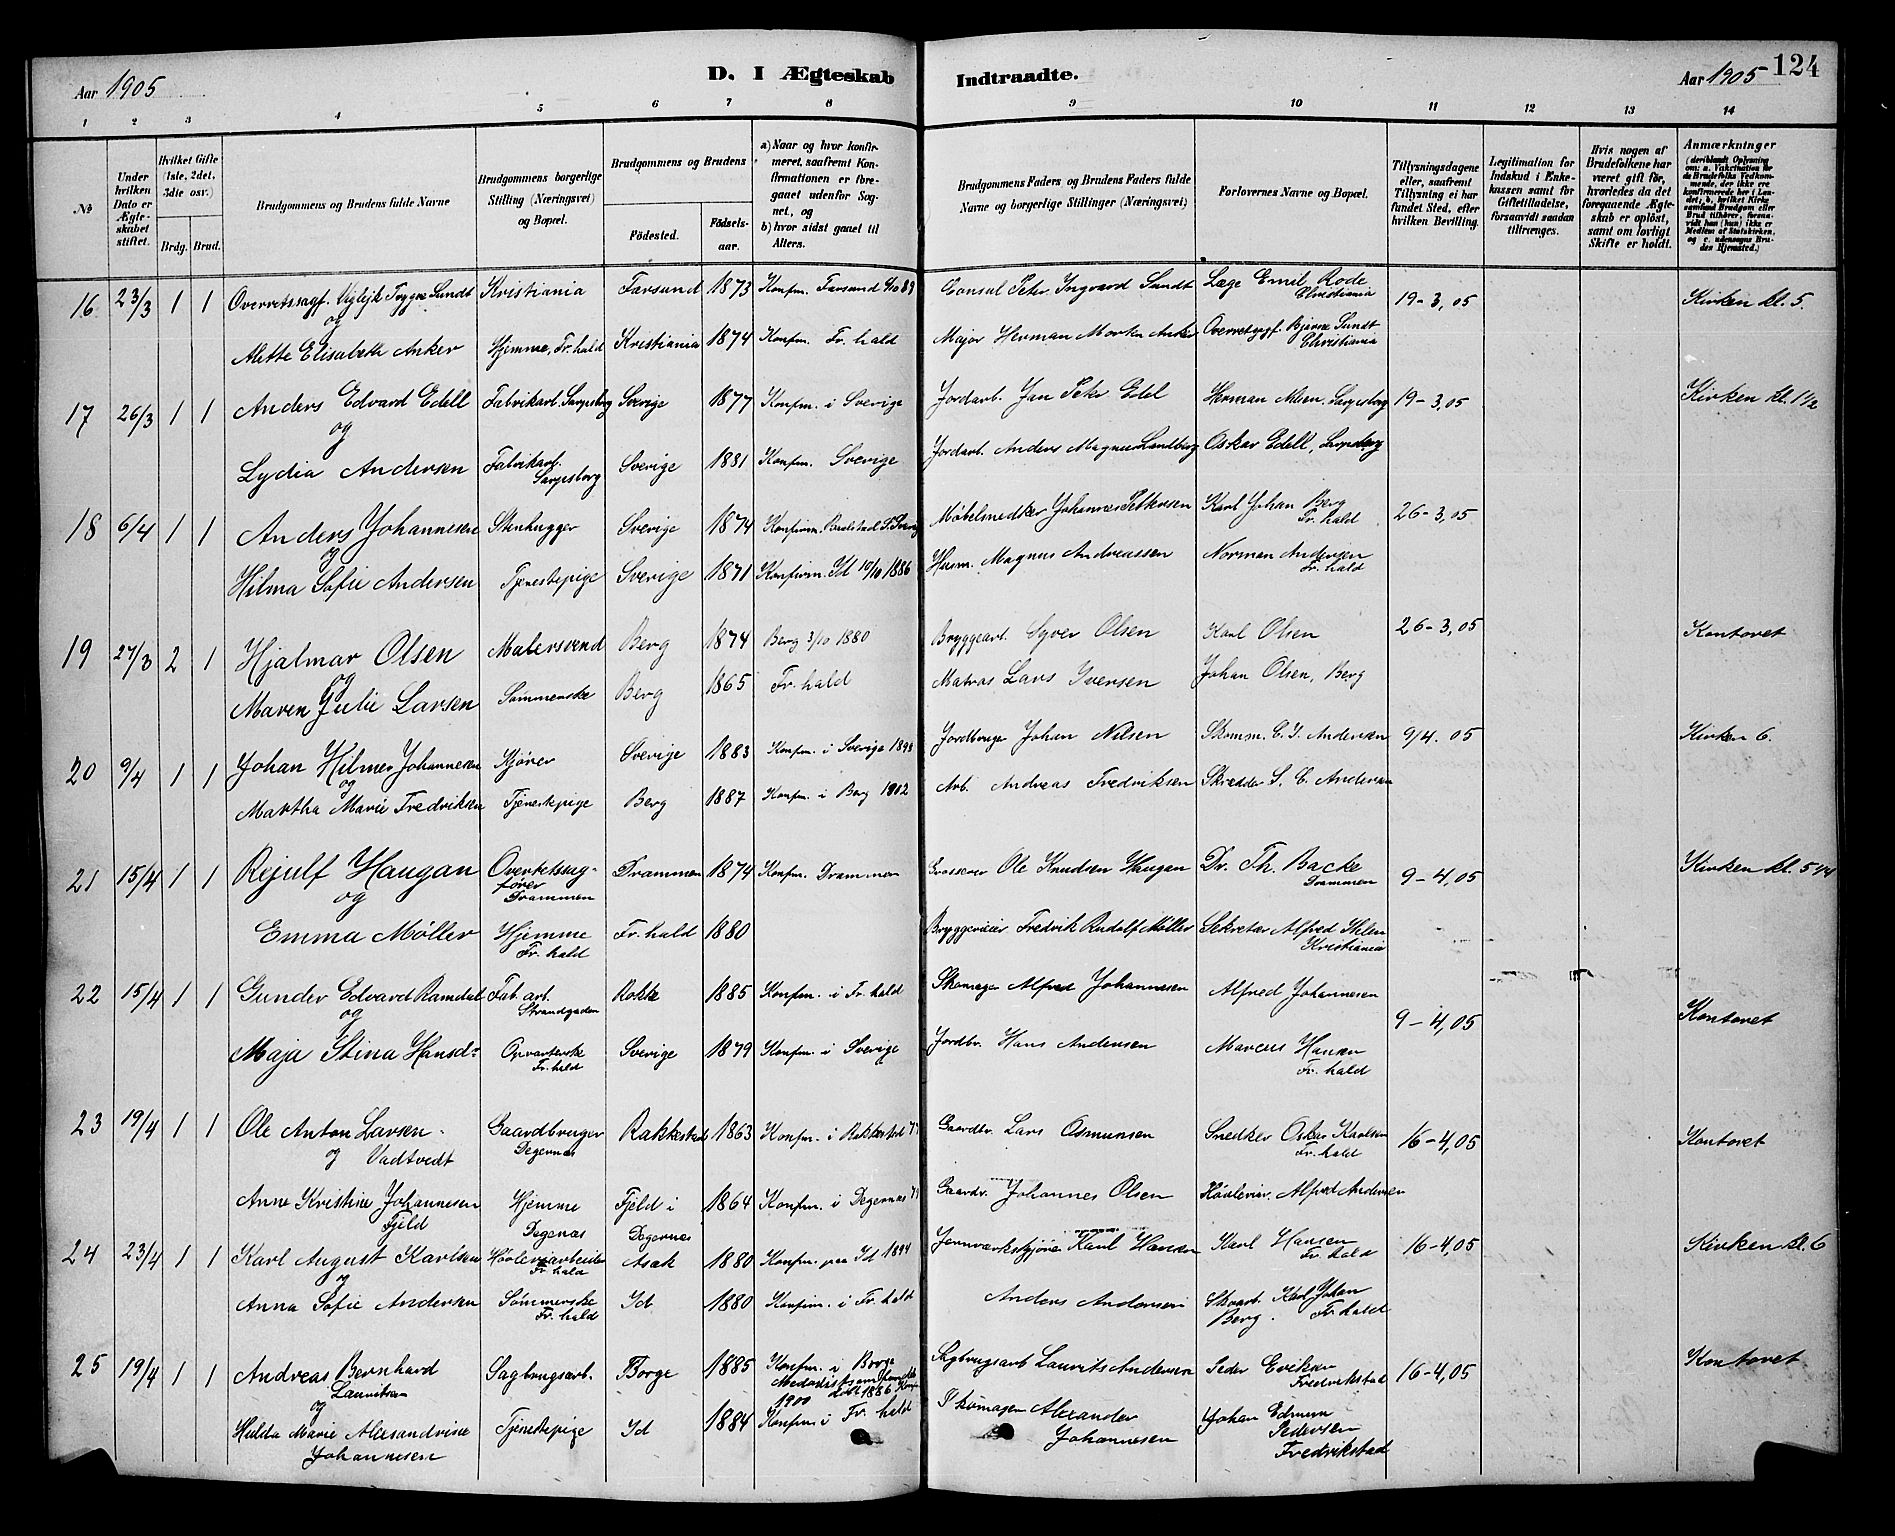 Aar 1905
D. I Ægteskab Indtraadte.
Aar 1905
124
1 2 3 4 5 6 7 8 9 10 11 12 13 14
No
Under hvilken Dato er Ægteskabet stiftet.
Hvilket Gifte (1ste, 2det, 3die osv.)
Brdg. Brud.
Brudgommens og Brudens fulde Navne
Brudgommens borgerlige Stilling (Næringsvei) og Bopæl.
Brudgommens og Brudens
Fødested.
Fødselsaar.
a) Naar og hvor konfirmeret, saafremt Konfirmationen er foregaaet udenfor Sognet, og
b) hvor sidst gaaet til Alters.
Brudgommens Faders og Brudens Faders fulde Navne og borgerlige Stillinger (Næringsvei)
Forlovernes Navne og Bopæl.
Tillysningsdagene eller, saafremt Tillysning ei har fundet Sted, efter hvilken Bevilling.
Legitimation for Indskud i Enkekassen samt for Giftetilladelse, forsaavidt saadan tiltrænges.
Hvis nogen af Brudefolkene har været gift før, hvorledes da det foregaaende Ægteskab er opløst, samt om lovligt Skifte er holdt.
Anmærkninger
16 23/3 1 1 Overretssagf. Trygve Sundt Kristiania Farsund 1873 Konfm. Farsund Consul Petr. Ingvard Sundt Læge Emil Rode Christiania 19-3,05 Kirken kl. 5.
og
Alette Elisabeth Anker Hjemme, Fr.hald Kristiania 1874 Konfm. Fr. hald Major Herman Morten Anker Bjarne Sundt Christiania
17 26/3 1 1 Anders Edvard Edell Fabrikarb. Sarpsborg Sverige 1877 Konfm. i Sverige Jordarb. Jan Petr Edel Herman Sarpsborg 19-3,05 Kirken kl. 1 1/2
og
Lydia Andersen Fabrikarb. Sarpsborg Sverige 1881 Konfm. Sverige Jordarb. Anders Magnus Landberg Oskar Edell, Sarpsborg
18 6/4 1 1 Anders Johannesen Stenhugger Sverige 1874 Konfirm. Møbelsnedker Johannes Pettersen Karl Johan Berg Fr. hald 26-3,05
og
Hilma Sofie Andersen Tjenestepige Sverige 1871 Konfirm. Id 10/10 1886 Husm. Magnus Andreassen Norman Andersen Fr. hald
19 27/3 2 1 Hjalmar Olsen Malersvend Berg 1874 Berg 3/10 1880 Bryggearb. Syver Olsen Karl Olsen 26-3,05 Kontoret
og
Maren Julie Larsen Sømmerske Berg 1865 Fr. hald Matros Lars Iversen Johan Olsen, Berg
20 9/4 1 1 Johan Hilmer Johannesen Kjører Sverige 1883 Konfm. i Sverige 1898 Jordbruger Johan Nilsen Skomm. C. J. Andersen 9/4. 05 Kirken 6.
og
Martha Marie Fredriksen Tjenestepige Berg 1887 Konfm. i Berg 1902 Arb. Andreas Fredriksen Skrædder S. C. Andersen
21 15/4 1 1 Rejulf Haugan Overretssagfører Drammen Drammen 1874 Konfm. Drammen Grosserer Ole Knudsen Haugan Dr. Th. Backe Drammen 9-4,05 Kirken kl. 5 1/4
og
Emma Møller Hjemme Fr. hald Fr. hald 1880 Bryggerieier Fredrik Rudolf Møller Sekretær Alfred Kristiania
22 15/4 1 1 Gunder Edvard Ramdal Fab. arb. Strandgaden Rokke 1885 Konfm. i Fr. hald Skomager Alfred Johannesen Alfred Johannesen 9-4,05 Kontoret
og
Maja Stina Hansd. Opvarterske Fr. hald Sverige 1879 Konfm. i Sverige Jordbr. Hans Andersen Marcus Hansen Fr. hald
23 19/4 1 1 Ole Anton Larsen Gaardbruger Degernæs Rakkestad 1863 Konfm. i Rakkestad Gaardbr. Lars Osmunsen Snedker Oskar Karlsen Fr. hald 16-4,05 Kontoret
og Vadtvedt
Anne Kristine Johannesen Fjeld Hjemme Degenæs Fjeld i Degernæs 1864 Konfm. i Degernæs Gaardbr. Johannes Olsen Høvleriar. Alfred Andersen
24 23/4 1 1 Karl August Karlsen Høvleriarbeider Fr. hald Asak 1880 Konfm. paa Id 1894 Karl Hansen Karl Hansen Fr. hald 16-4,05 Kirken kl. 6
og
Anna Sofie Andersen Sømmerske Fr. hald Id 1880 Konfm. i Fr. hald Anders Andersen Skoarb. Karl Johan Berg. Fr. hald
25 19/4 1 1 Andreas Bernhard Lauritsen Sagbrugsarb. Borge 1885 Konfm. i Borge 1900 Sagbrugsarb Laurits Andersen Peder Eriksen Fredrikstad 16-4,05 Kontoret
og
Hulda Marie Alexandrine Johannesen Tjenestepige Id 1884 Konfm. i Fr. hald Skomager Alexander Johannesen Johan Edmun Pedersen Fredrikstad